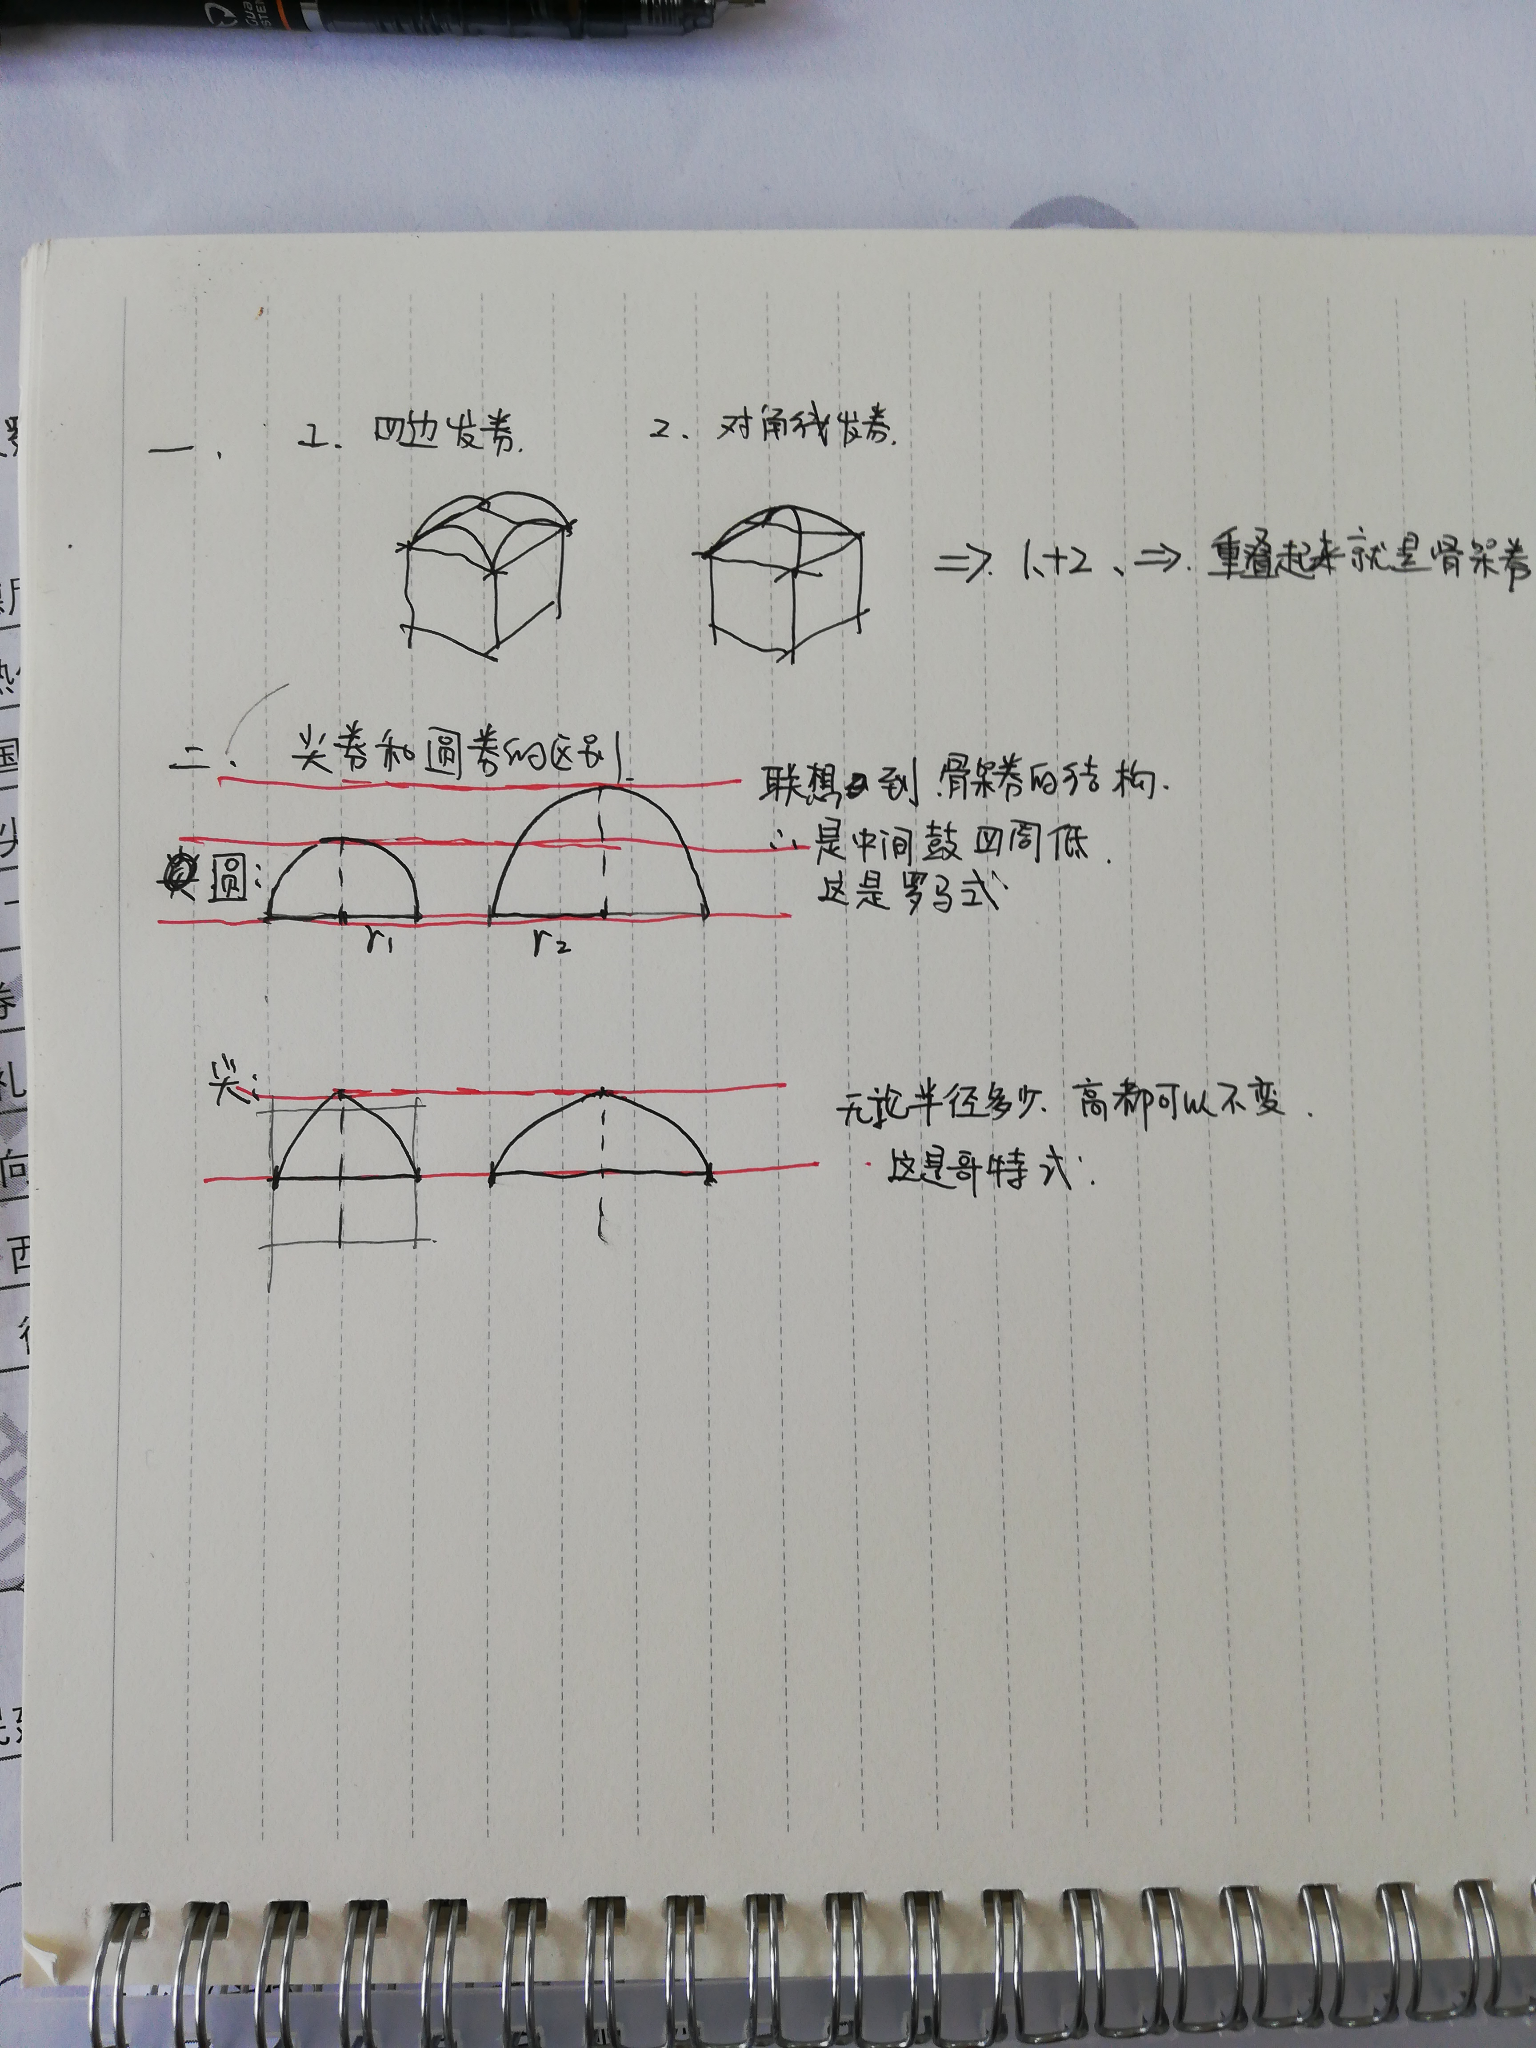 一、 1. 四边发券. 2. 对角线发券.
⇒ 1+2、⇒ 重叠起来就是骨架券
二、 尖券和圆券的区别.
联想到骨架券的结构.
∴是中间鼓四周低.
圆:
这是罗马式.
r₁ r₂
尖:
无论半径多少、高都可以不变.
这是哥特式.